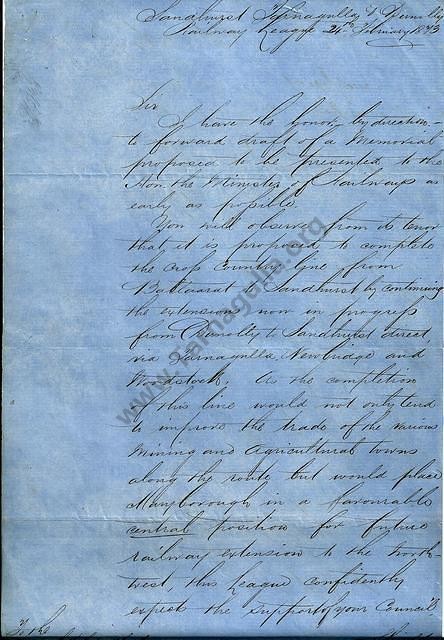 Sandhurst Tarnagulla & Dunolly
Railway League 24th February 1873
Sir
I have the honor, by direction,
to forward draft of a Memorial
proposed to be presented to the
Hon. the Minister of Railways as
early as possible.
You will observe from its tenor
that it is proposed to complete
the cross Country line from
Ballaarat to Sandhurst by continuing
the extension now in progress
from Dunolly to Sandhurst direct,
via Tarnagulla, Newbridge and
Woodstock. As the completion
of this line would not only tend
to improve the trade of the various
Mining and Agricultural towns
along the route but would place
Maryborough in a favourable
central position for future
railway extension to the North
West, this League confidently
expects the support of your Council
To the
www.tarnagulla.org